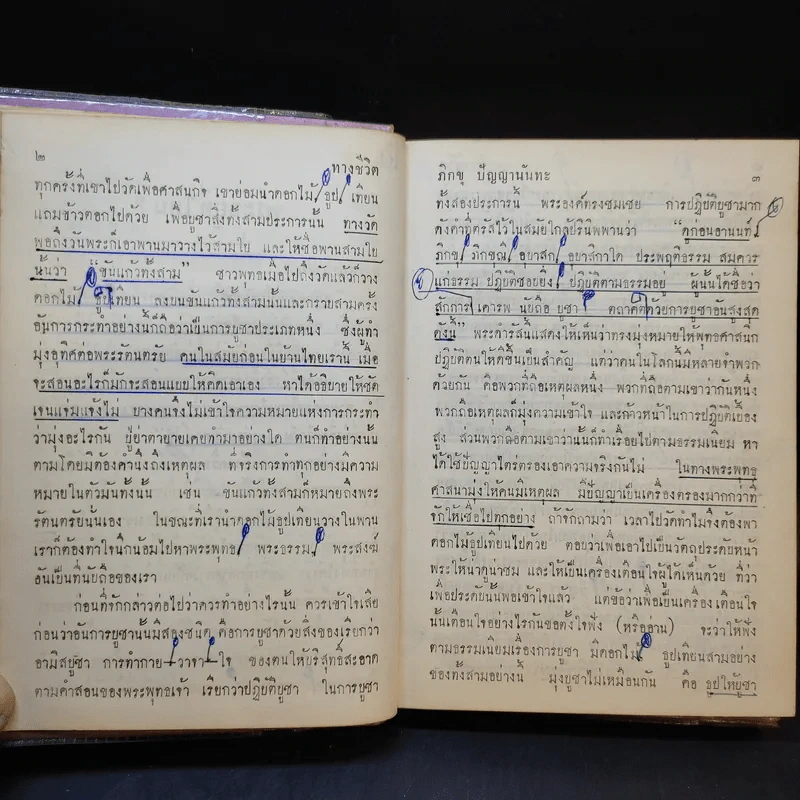 ๒
ทางชีวิต
ทุกครั้งที่เขาไปวัดเพื่อศาสนกิจ เขาย่อมนำดอกไม้ ธูป เทียน
แถมข้าวตอกไปด้วย เพื่อบูชาสิ่งทั้งสามประการนั้น ทางวัด
พอถึงวันพระก็เอาพานมาวางไว้สามใบ และให้ชื่อพานสามใบ
นั้นว่า “ขันแก้วทั้งสาม” ชาวพุทธเมื่อไปถึงวัดแล้วก็วาง
ดอกไม้ ธูปเทียน ลงบนขันแก้วทั้งสามนั้นและกราบสามครั้ง
อันการกระทำอย่างนี้ถือว่าเป็นการบูชาประเภทหนึ่ง ซึ่งผู้ทำ
มุ่งอุทิศต่อพระรัตนตรัย คนในสมัยก่อนในบ้านไทยเรานี้ เมื่อ
จะสอนอะไรก็มักจะสอนแบบให้คิดเอาเอง หาได้อธิบายให้ชัด
เจนแจ่มแจ้งไม่ บางคนจึงไม่เข้าใจความหมายแห่งการกระทำ
ว่ามุ่งอะไรกัน ปู่ย่าตายายเคยทำมาอย่างใด ตนก็ทำอย่างนั้น
ตามโดยมิต้องคำนึงถึงเหตุผล ที่จริงการทำทุกอย่างมีความ
หมายในตัวมันทั้งนั้น เช่น ขันแก้วทั้งสามก็หมายถึงพระ
รัตนตรัยนั่นเอง ในขณะที่เรานำดอกไม้ธูปเทียนวางในพาน
เราก็ต้องทำใจนึกน้อมไปหาพระพุทธ พระธรรม พระสงฆ์
อันเป็นที่นับถือของเรา
ก่อนที่จักกล่าวต่อไปว่าควรทำอย่างไรนั้น ควรเข้าใจเสีย
ก่อนว่าอันการบูชานั้นมีสองชนิด คือการบูชาด้วยสิ่งของเรียกว่า
อามิสบูชา การทำกาย วาจา ใจ ของตนให้บริสุทธิ์สะอาด
ตามคำสอนของพระพุทธเจ้า เรียกว่าปฏิบัติบูชา ในการบูชา
ภิกขุ ปัญญานันทะ
๓
ทั้งสองประการนี้ พระองค์ทรงชมเชย การปฏิบัติบูชามาก
ดังคำที่ตรัสไว้ในสมัยใกล้ปรินิพพานว่า “ดูก่อนอานนท์
ภิกขุ ภิกขุณี อุบาสก อุบาสิกาใด ประพฤติธรรม สมควร
แก่ธรรม ปฏิบัติชอบยิ่ง ปฏิบัติตามธรรมอยู่ ผู้นั้นได้ชื่อว่า
สักการ เคารพ นับถือ บูชา ตถาคตด้วยการบูชาอันสูงสุด
ดังนี้” พระดำรัสนี้แสดงให้เห็นว่าทรงมุ่งหมายให้พุทธศาสนิก
ปฏิบัติตนให้ดีขึ้นเป็นสำคัญ แต่ว่าคนในโลกนี้มีหลายจำพวก
ด้วยกัน คือพวกที่ถือเหตุผลหนึ่ง พวกที่ถือตามเขาว่ากันหนึ่ง
พวกถือเหตุผลก็มุ่งความเข้าใจ และก้าวหน้าในการปฏิบัติเบื้อง
สูง ส่วนพวกถือตามเขาว่านั้นก็ทำเรื่อยไปตามธรรมเนียม หา
ได้ใช้ปัญญาไตร่ตรองเอาความจริงกันไม่ ในทางพระพุทธ
ศาสนามุ่งให้คนมีเหตุผล มีปัญญาเป็นเครื่องตรองมากกว่าที่
จักให้เชื่อไปทุกอย่าง ถ้าจักถามว่า เวลาไปวัดทำไมจึงต้องพา
ดอกไม้ธูปเทียนไปด้วย ตอบว่าเพื่อเอาไปเป็นวัตถุประดับหน้า
พระให้น่าดูน่าชม และให้เป็นเครื่องเตือนใจผู้ได้เห็นด้วย ที่ว่า
เพื่อประดับนั้นพอเข้าใจแล้ว แต่ข้อว่าเพื่อเป็นเครื่องเตือนใจ
นั้นเตือนใจอย่างไรกันขอตั้งใจฟัง (หรืออ่าน) จะว่าให้ฟัง
ตามธรรมเนียมเรื่องการบูชา มีดอกไม้ ธูปเทียนสามอย่าง
ของทั้งสามอย่างนี้ มุ่งบูชาไม่เหมือนกัน คือ ธูปให้บูชา